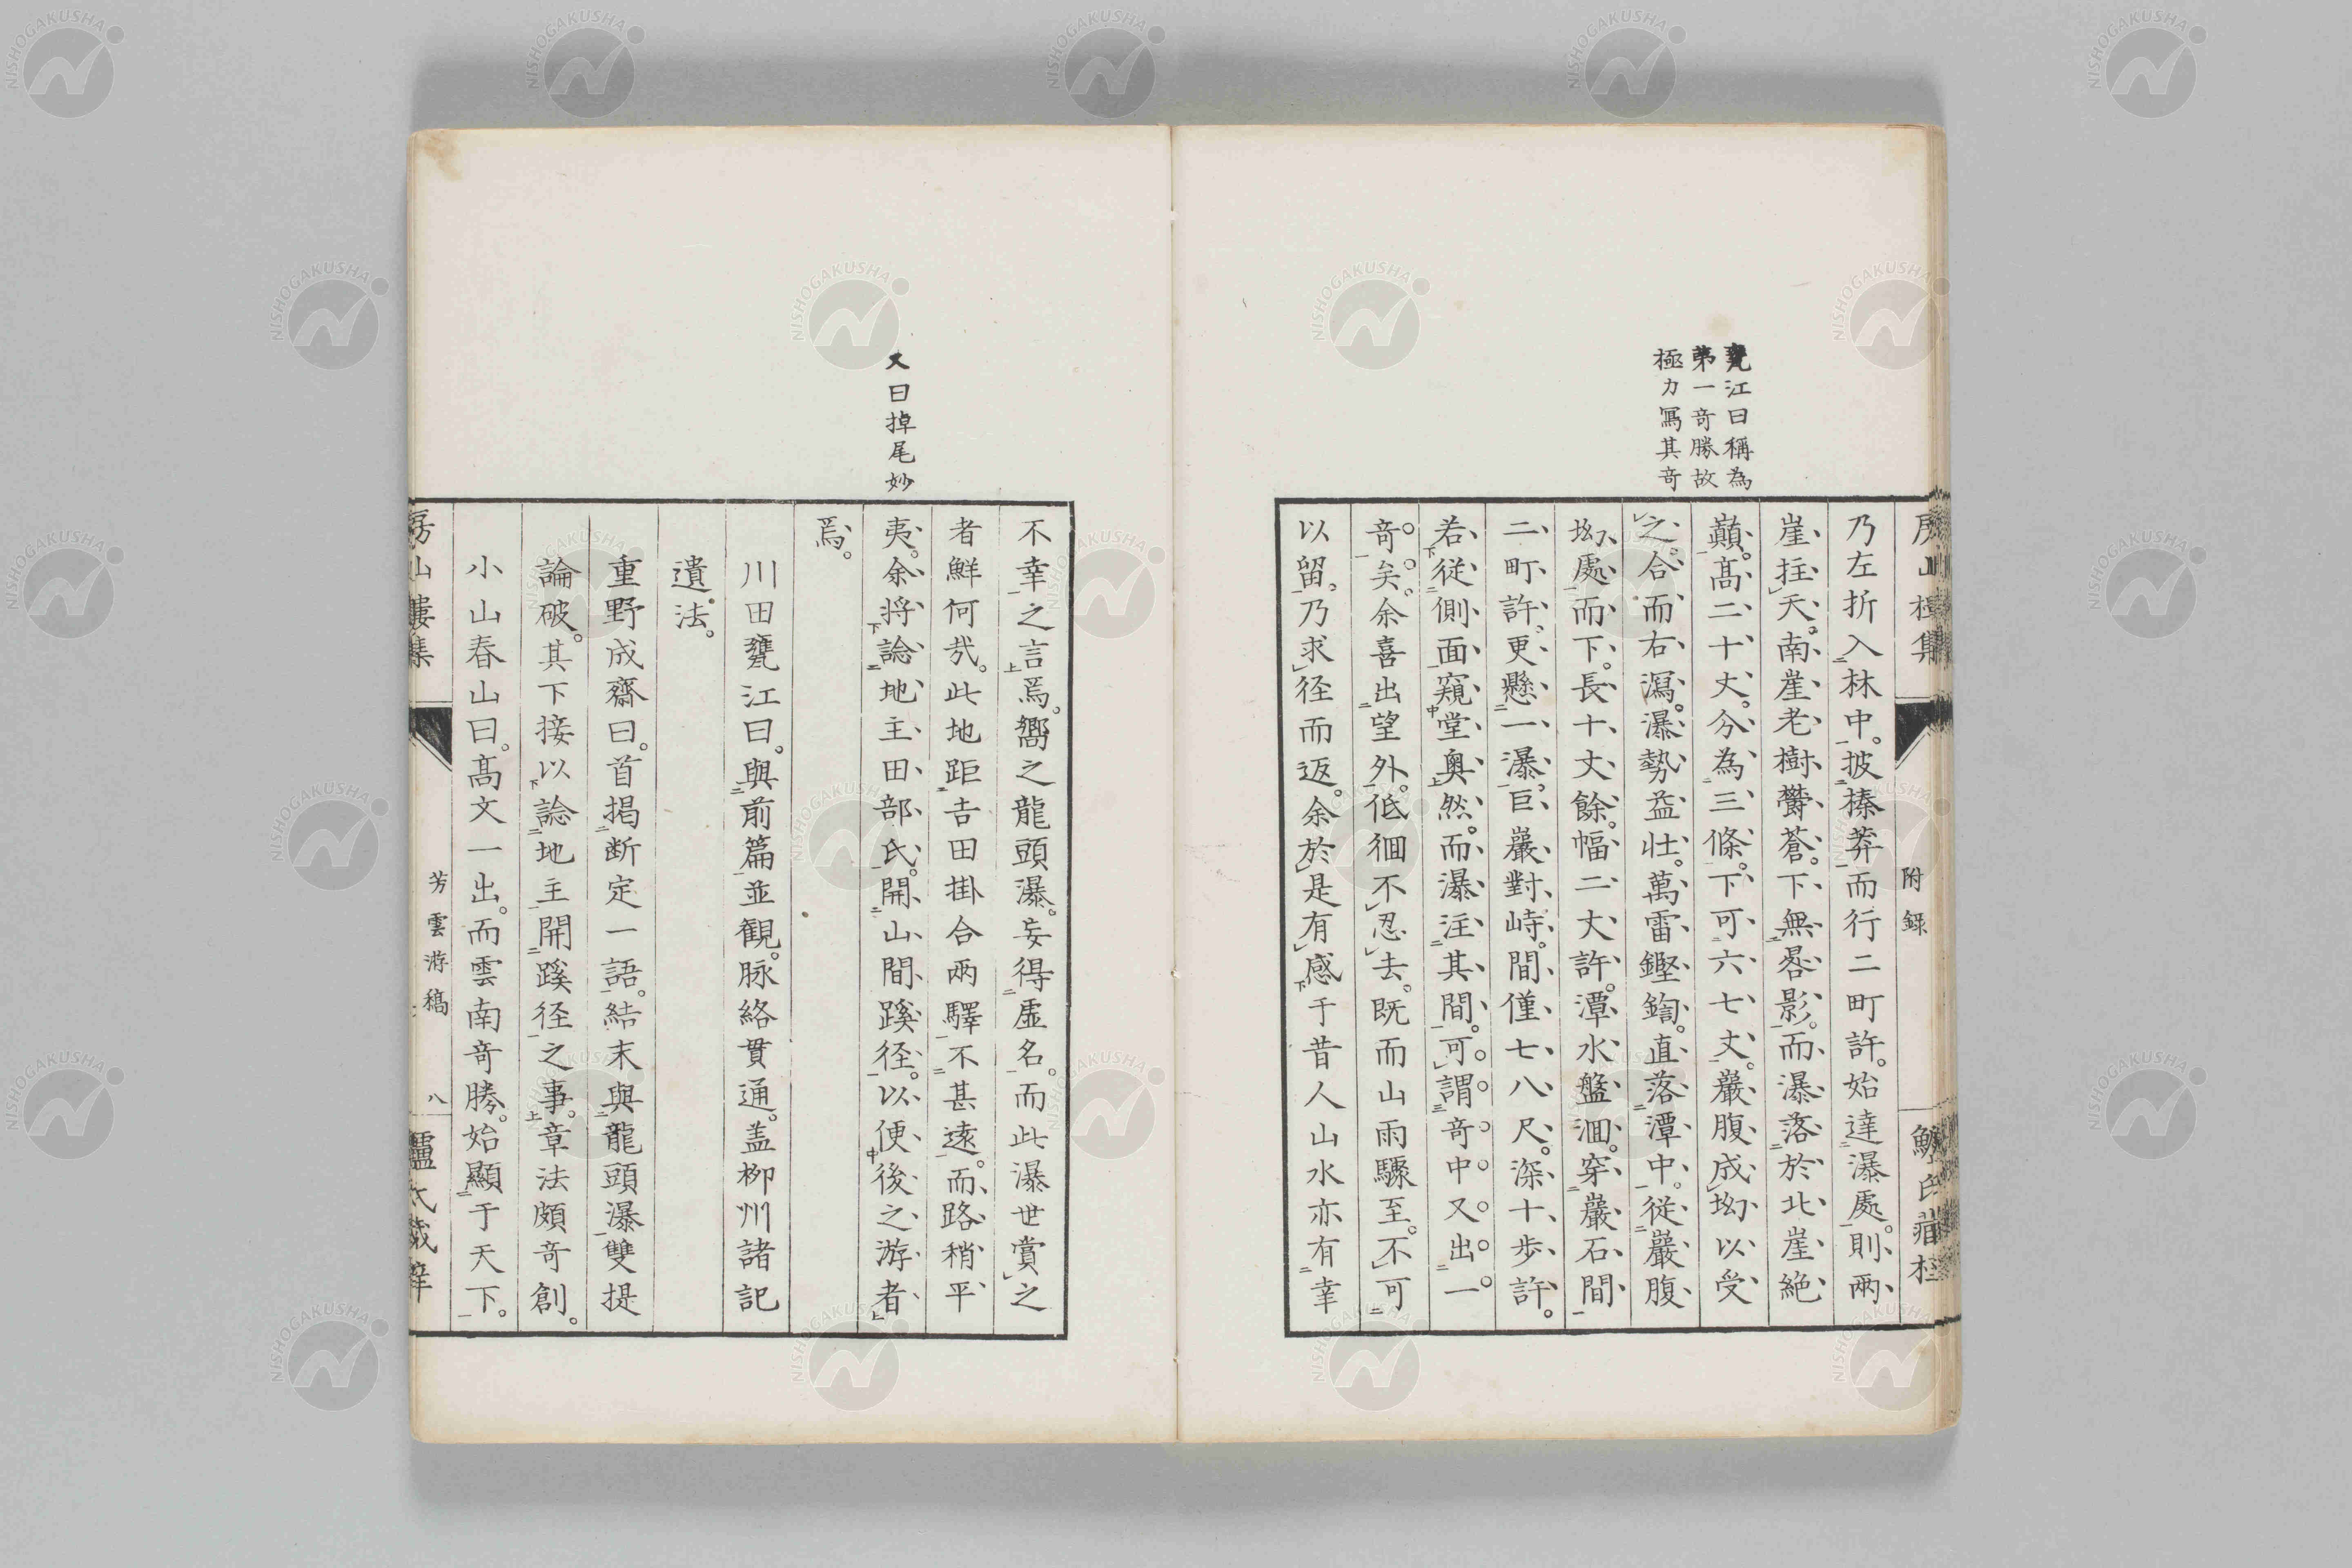 甕江曰稱為
第一奇勝故
極力寫其奇
附錄
乃左折入林中。披榛莽而行二町許。始達瀑處。則兩
崖拄天。南崖老樹欝蒼。下無晷影。而瀑落於北崖絶
巔。髙二十丈。分為三條。下可六七丈。巖腹成坳以受
之。合而右瀉。瀑勢益壮。萬雷鏗鍧。直落潭中。從巖腹
坳處而下。長十丈餘。幅二丈許。潭水盤洄。穿巖石間
二町許。更懸一瀑。巨巖對峙。間僅七八尺。深十步許。
若從側面窺堂奥然。而瀑注其間。可謂奇中又出一
奇矣。余喜出望外。低徊不忍去。既而山雨驟至。不可
以留。乃求径而返。余於是有感于昔人山水亦有幸
不幸之言焉。嚮之龍頭瀑。妄得虚名。而此瀑世賞之
者鮮何哉。此地距吉田掛合兩驛不甚遠。而路稍平
夷。余将諗地主田部氏。開山間蹊径。以便後之游者
焉。
又曰掉尾妙
川田甕江曰。與前篇並観。脉絡貫通。盖柳州諸記
遺法。
重野成齋曰。首掲断定一語。結末與龍頭瀑雙提
論破。其下接以諗地主開蹊径之事。章法頗奇創。
小山春山曰。髙文一出。而雲南奇勝。始顯于天下。
房山樓集
芳雲游稿
八